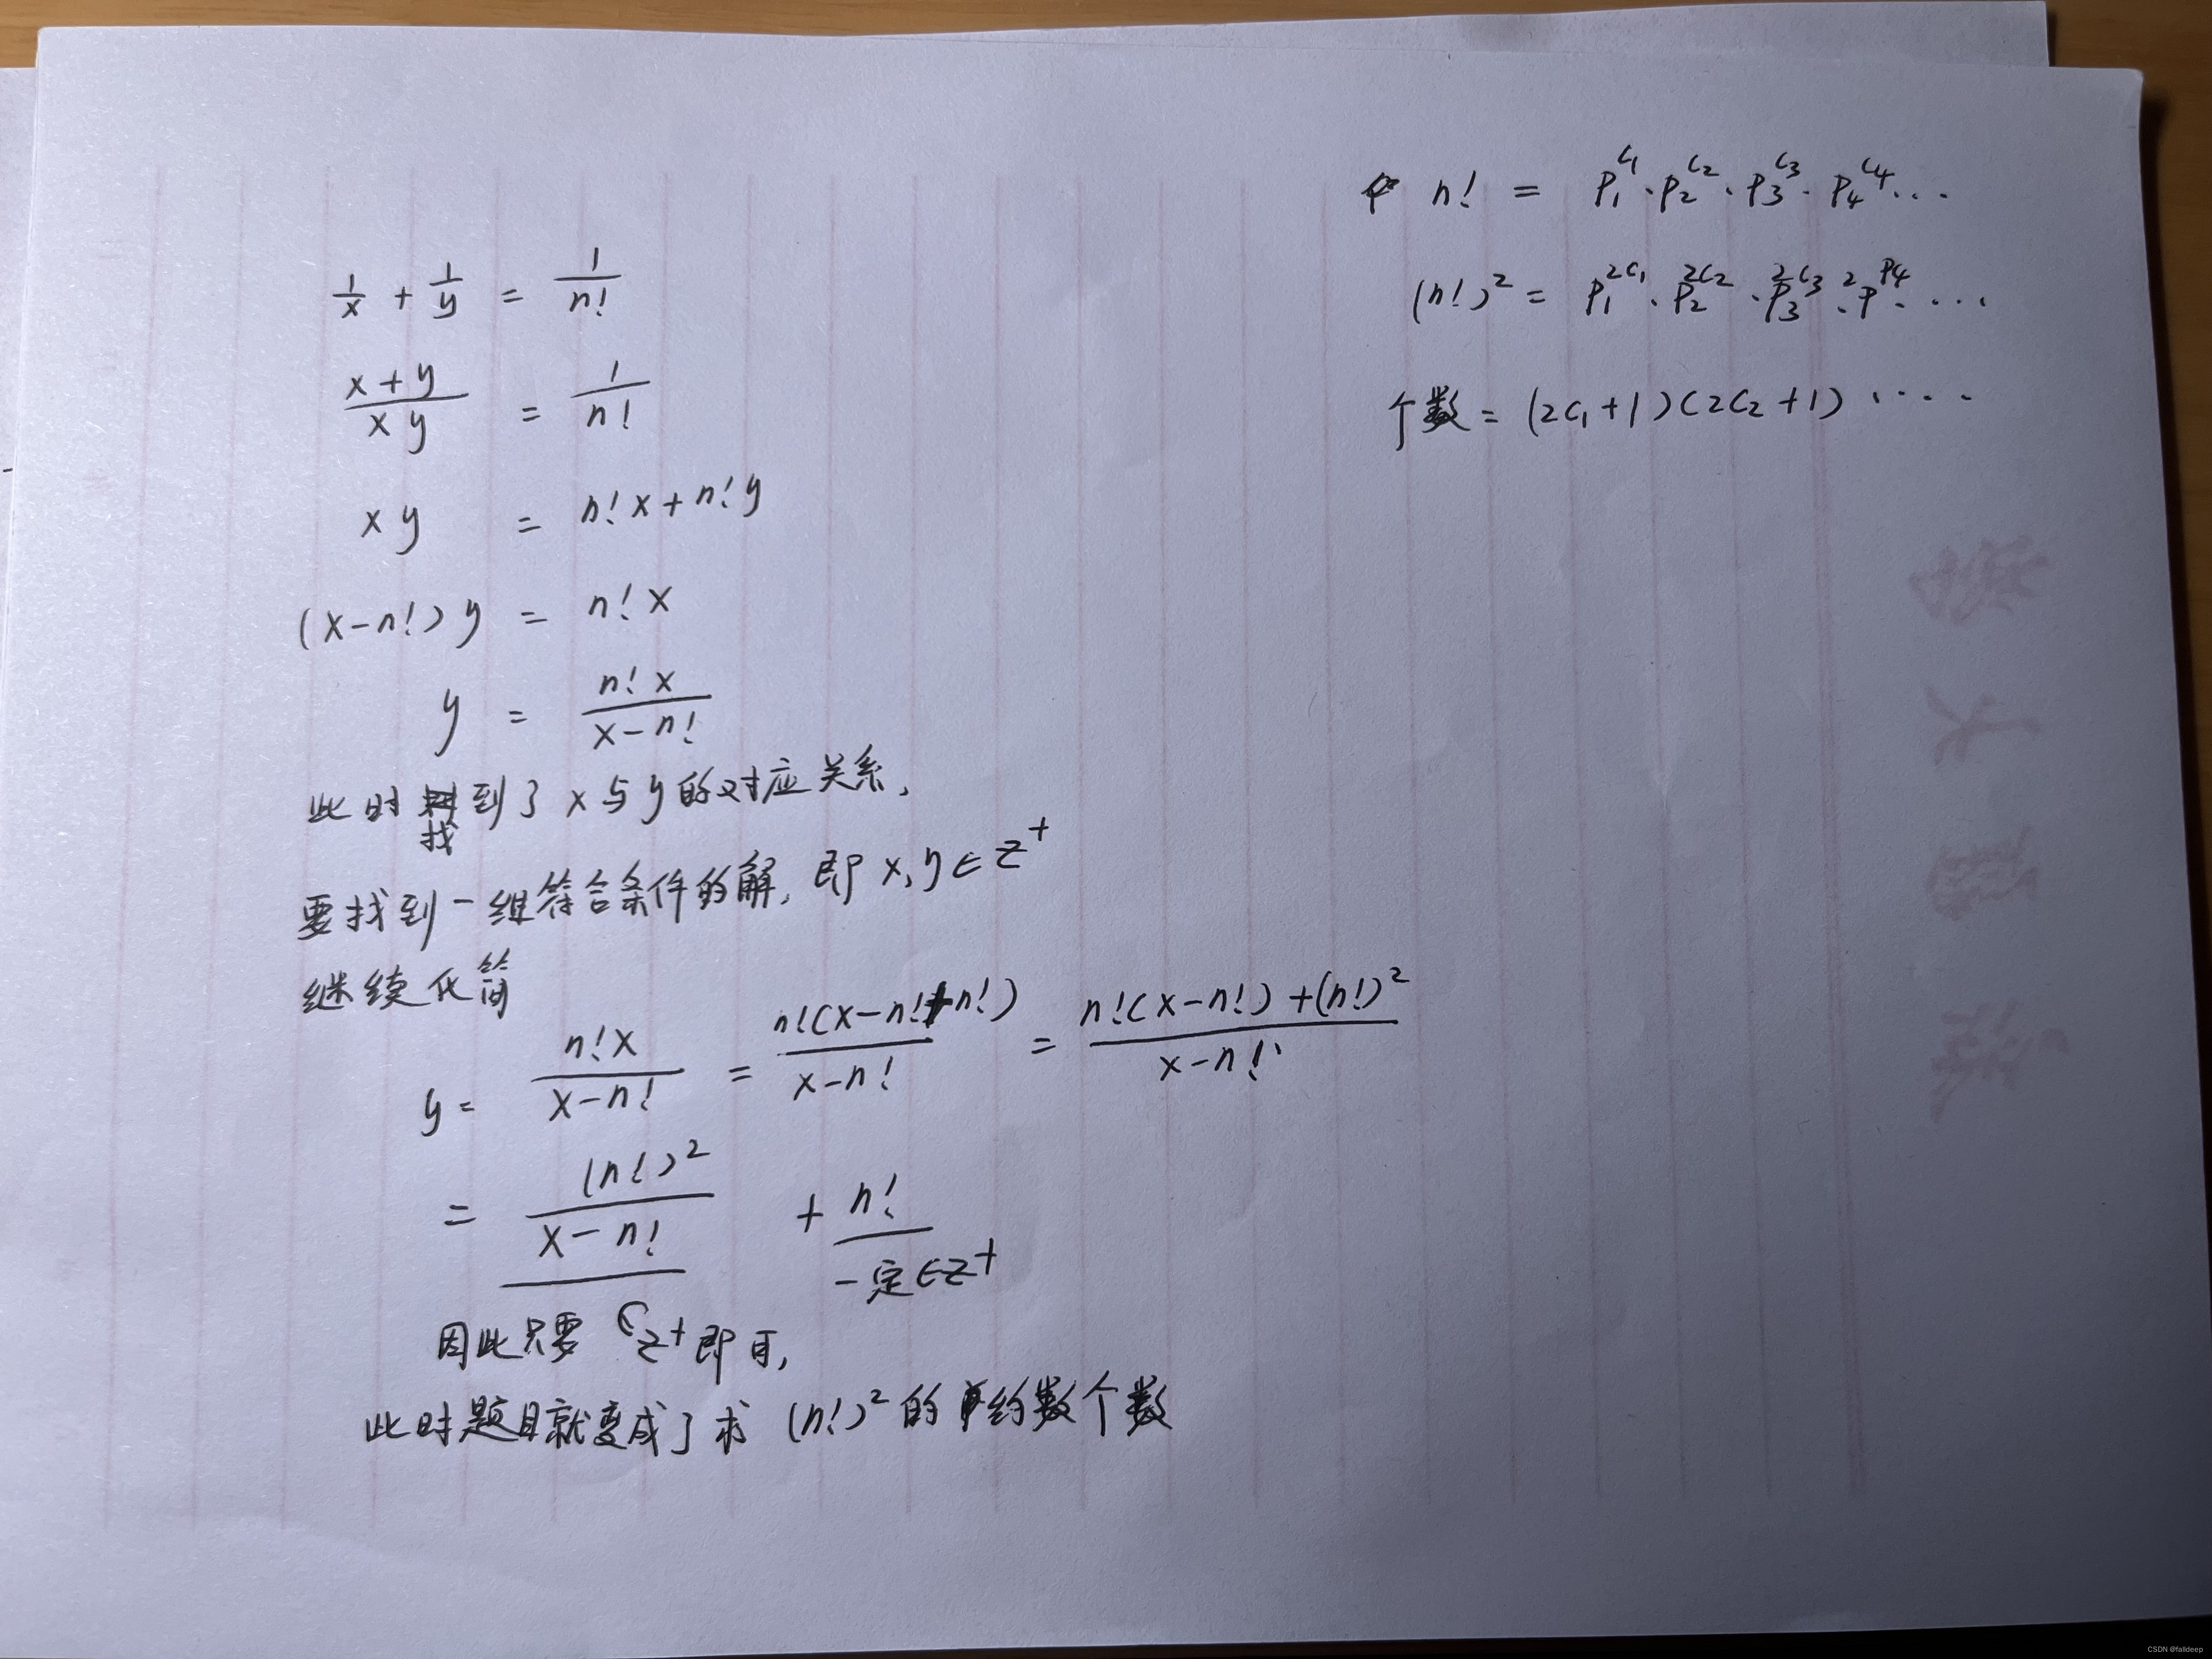 1/x + 1/y = 1/n!
(x+y)/(xy) = 1/n!
xy = n!x + n!y
(x-n!)y = n!x
y = n!x/(x-n!)
此时找到了x与y的对应关系,
要找到一组符合条件的解,即x,y∈Z⁺
继续化简
y = n!x/(x-n!) = n!(x-n!+n!)/(x-n!) = (n!(x-n!)+(n!)²)/(x-n!)
= (n!)²/(x-n!) + n!
一定∈Z⁺
因此只要∈Z⁺即可,
此时题目就变成了求(n!)²的约数个数
n! = P₁^C₁·P₂^C₂·P₃^C₃·P₄^C₄...
(n!)² = P₁^2C₁·P₂^2C₂·P₃^2C₃·P^2P₄·...
个数=(2C₁+1)(2C₂+1)....
CSDN @falldeep